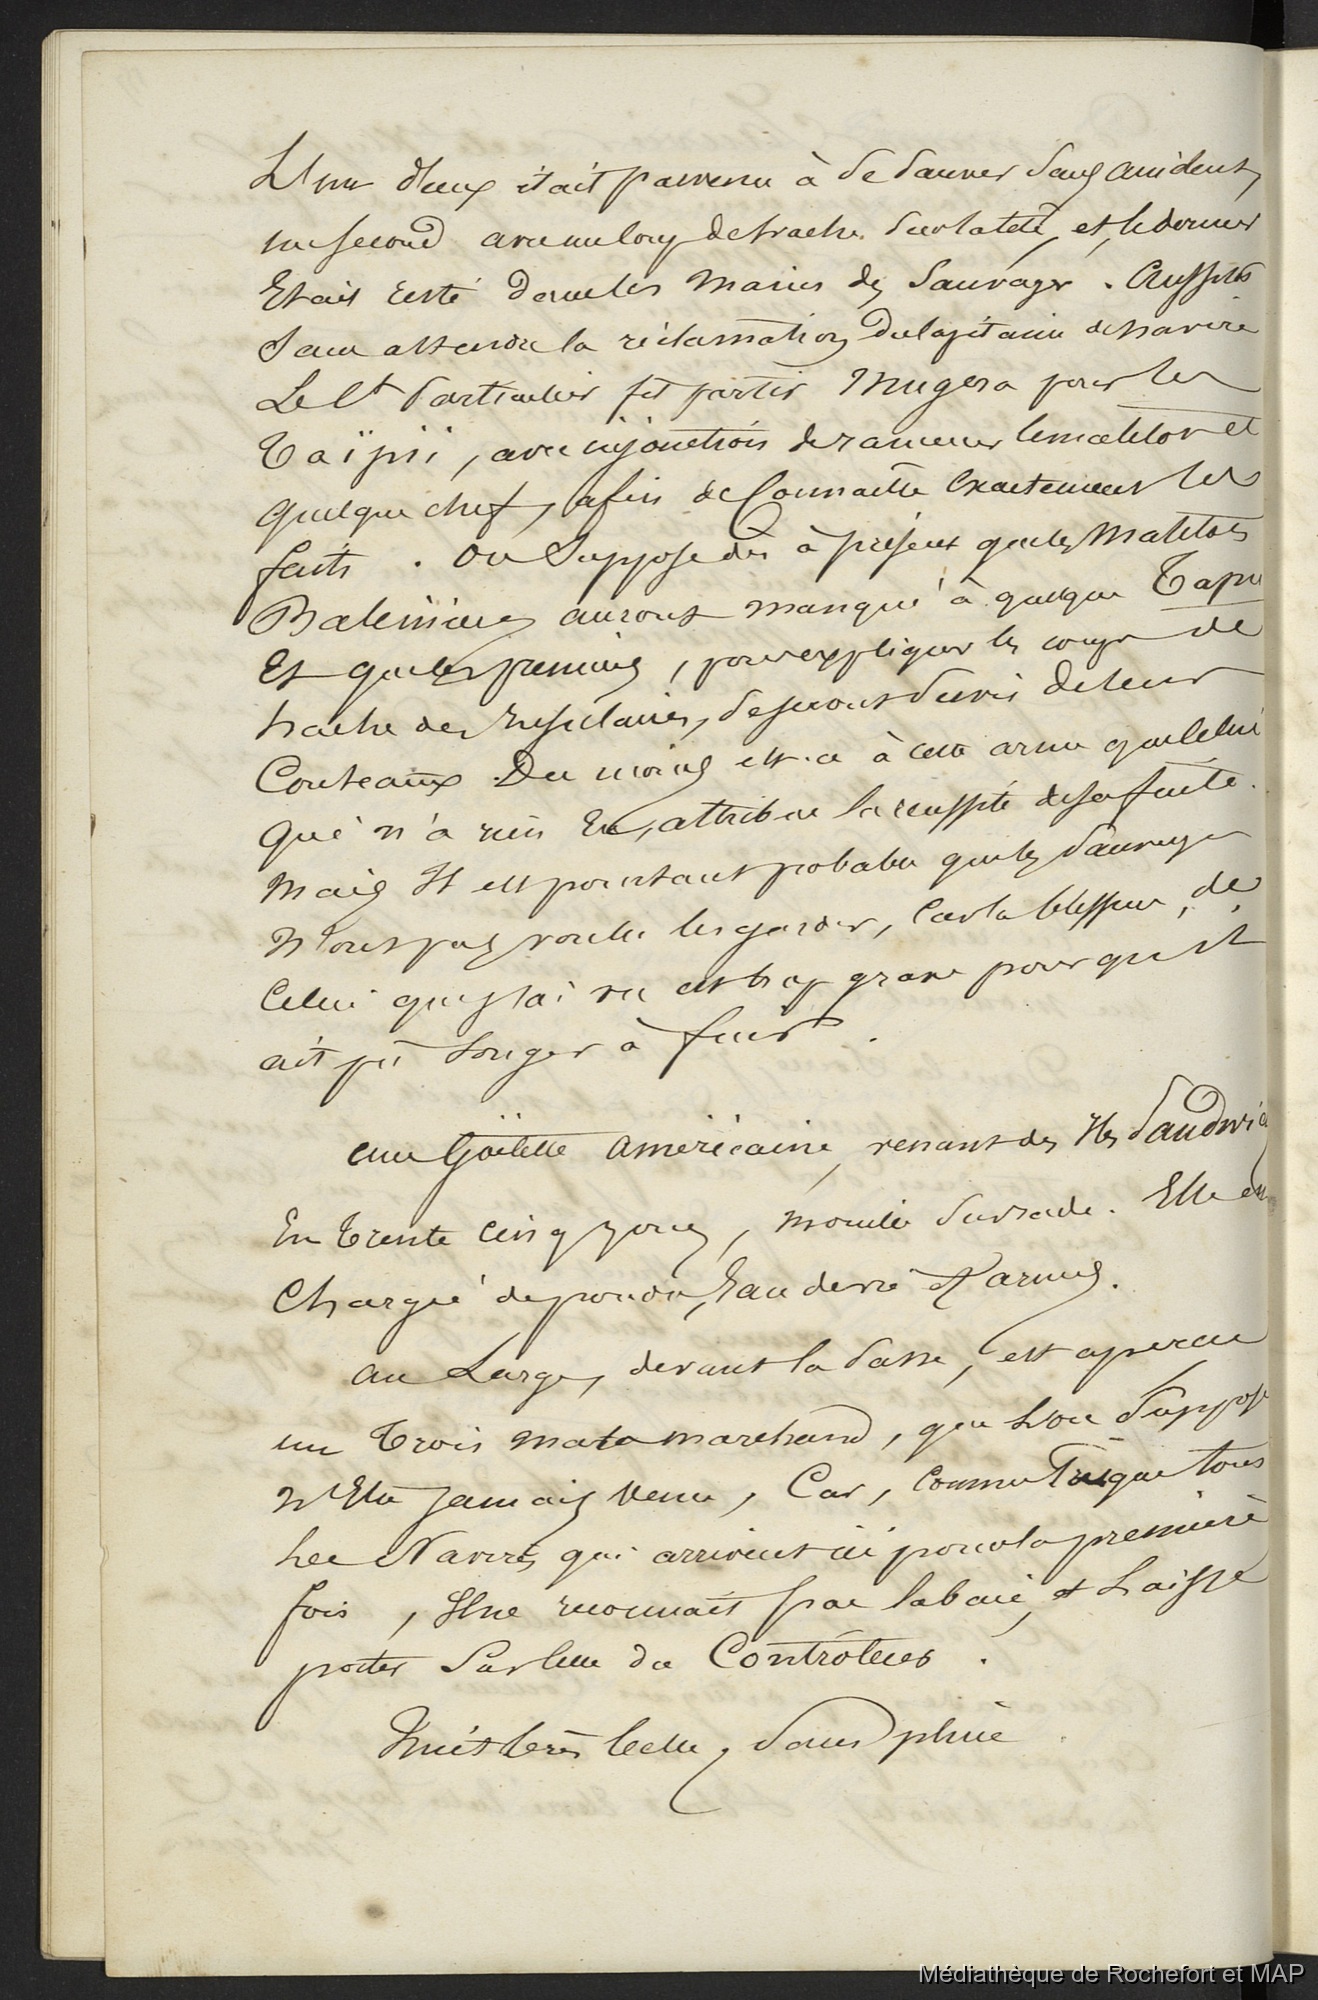 L'un d'eux était parvenu à se sauver sans accident,
un second avec un coup de hache sur la tête, et le dernier
était resté dans les mains des sauvages. Aussitôt
sans attendre la réclamation du capitaine du navire
Le Ct particulier fit partir pour les
Taïpii, avec injonction de ramener le matelot et
quelque chef, afin de connaître exactement les
faits. On suppose dès à présent que les matelots
Baleiniers auront manqué à quelque Tapu
Et que les premiers, pour expliquer les coups de
hache des insulaires, se seront servis de leurs
Couteaux. Du moins est-ce à cette arme que celui
qui n'a rien eu, attribue la réussite de sa fuite.
Mais Il est pourtant probable que les sauvages
N'ont pas voulu les garder, car la blessure de
Celui que j'ai vu est trop grave pour qu'il
ait pu songer à fuir.
une Goëlette américaine, venant des Iles Sandwich
En trente cinq jours, mouille sur rade. Elle est
Chargée de poudre, Eau de vie et armes.
au Large, devant la passe, est aperçu
un Trois mats marchand, que l'on suppose
N'être jamais venu, Car, comme presque tous
les Navires qui arrivent ici pour la première
fois, Il ne reconnait pas la baie et laisse
porter sur celle du Contrôleur.
Nuit très belle, sans pluie
Médiathèque de Rochefort et MAP